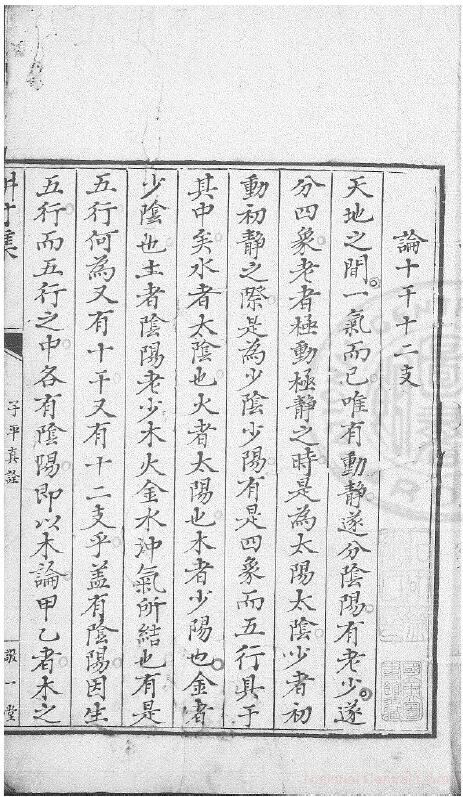 論十干十二支
天地之間一氣而已唯有動靜遂分陰陽有老少遂
分四象老者極動極靜之時是為太陽太陰少者初
動初靜之際是為少陰少陽有是四象而五行具于
其中矣水者太陰也火者太陽也木者少陽也金者
少陰也土者陰陽老少木火金水沖氣所結也有是
五行何為又有十干又有十二支乎蓋有陰陽因生
五行而五行之中各有陰陽即以木論甲乙者木之
子平真詮
敬一堂